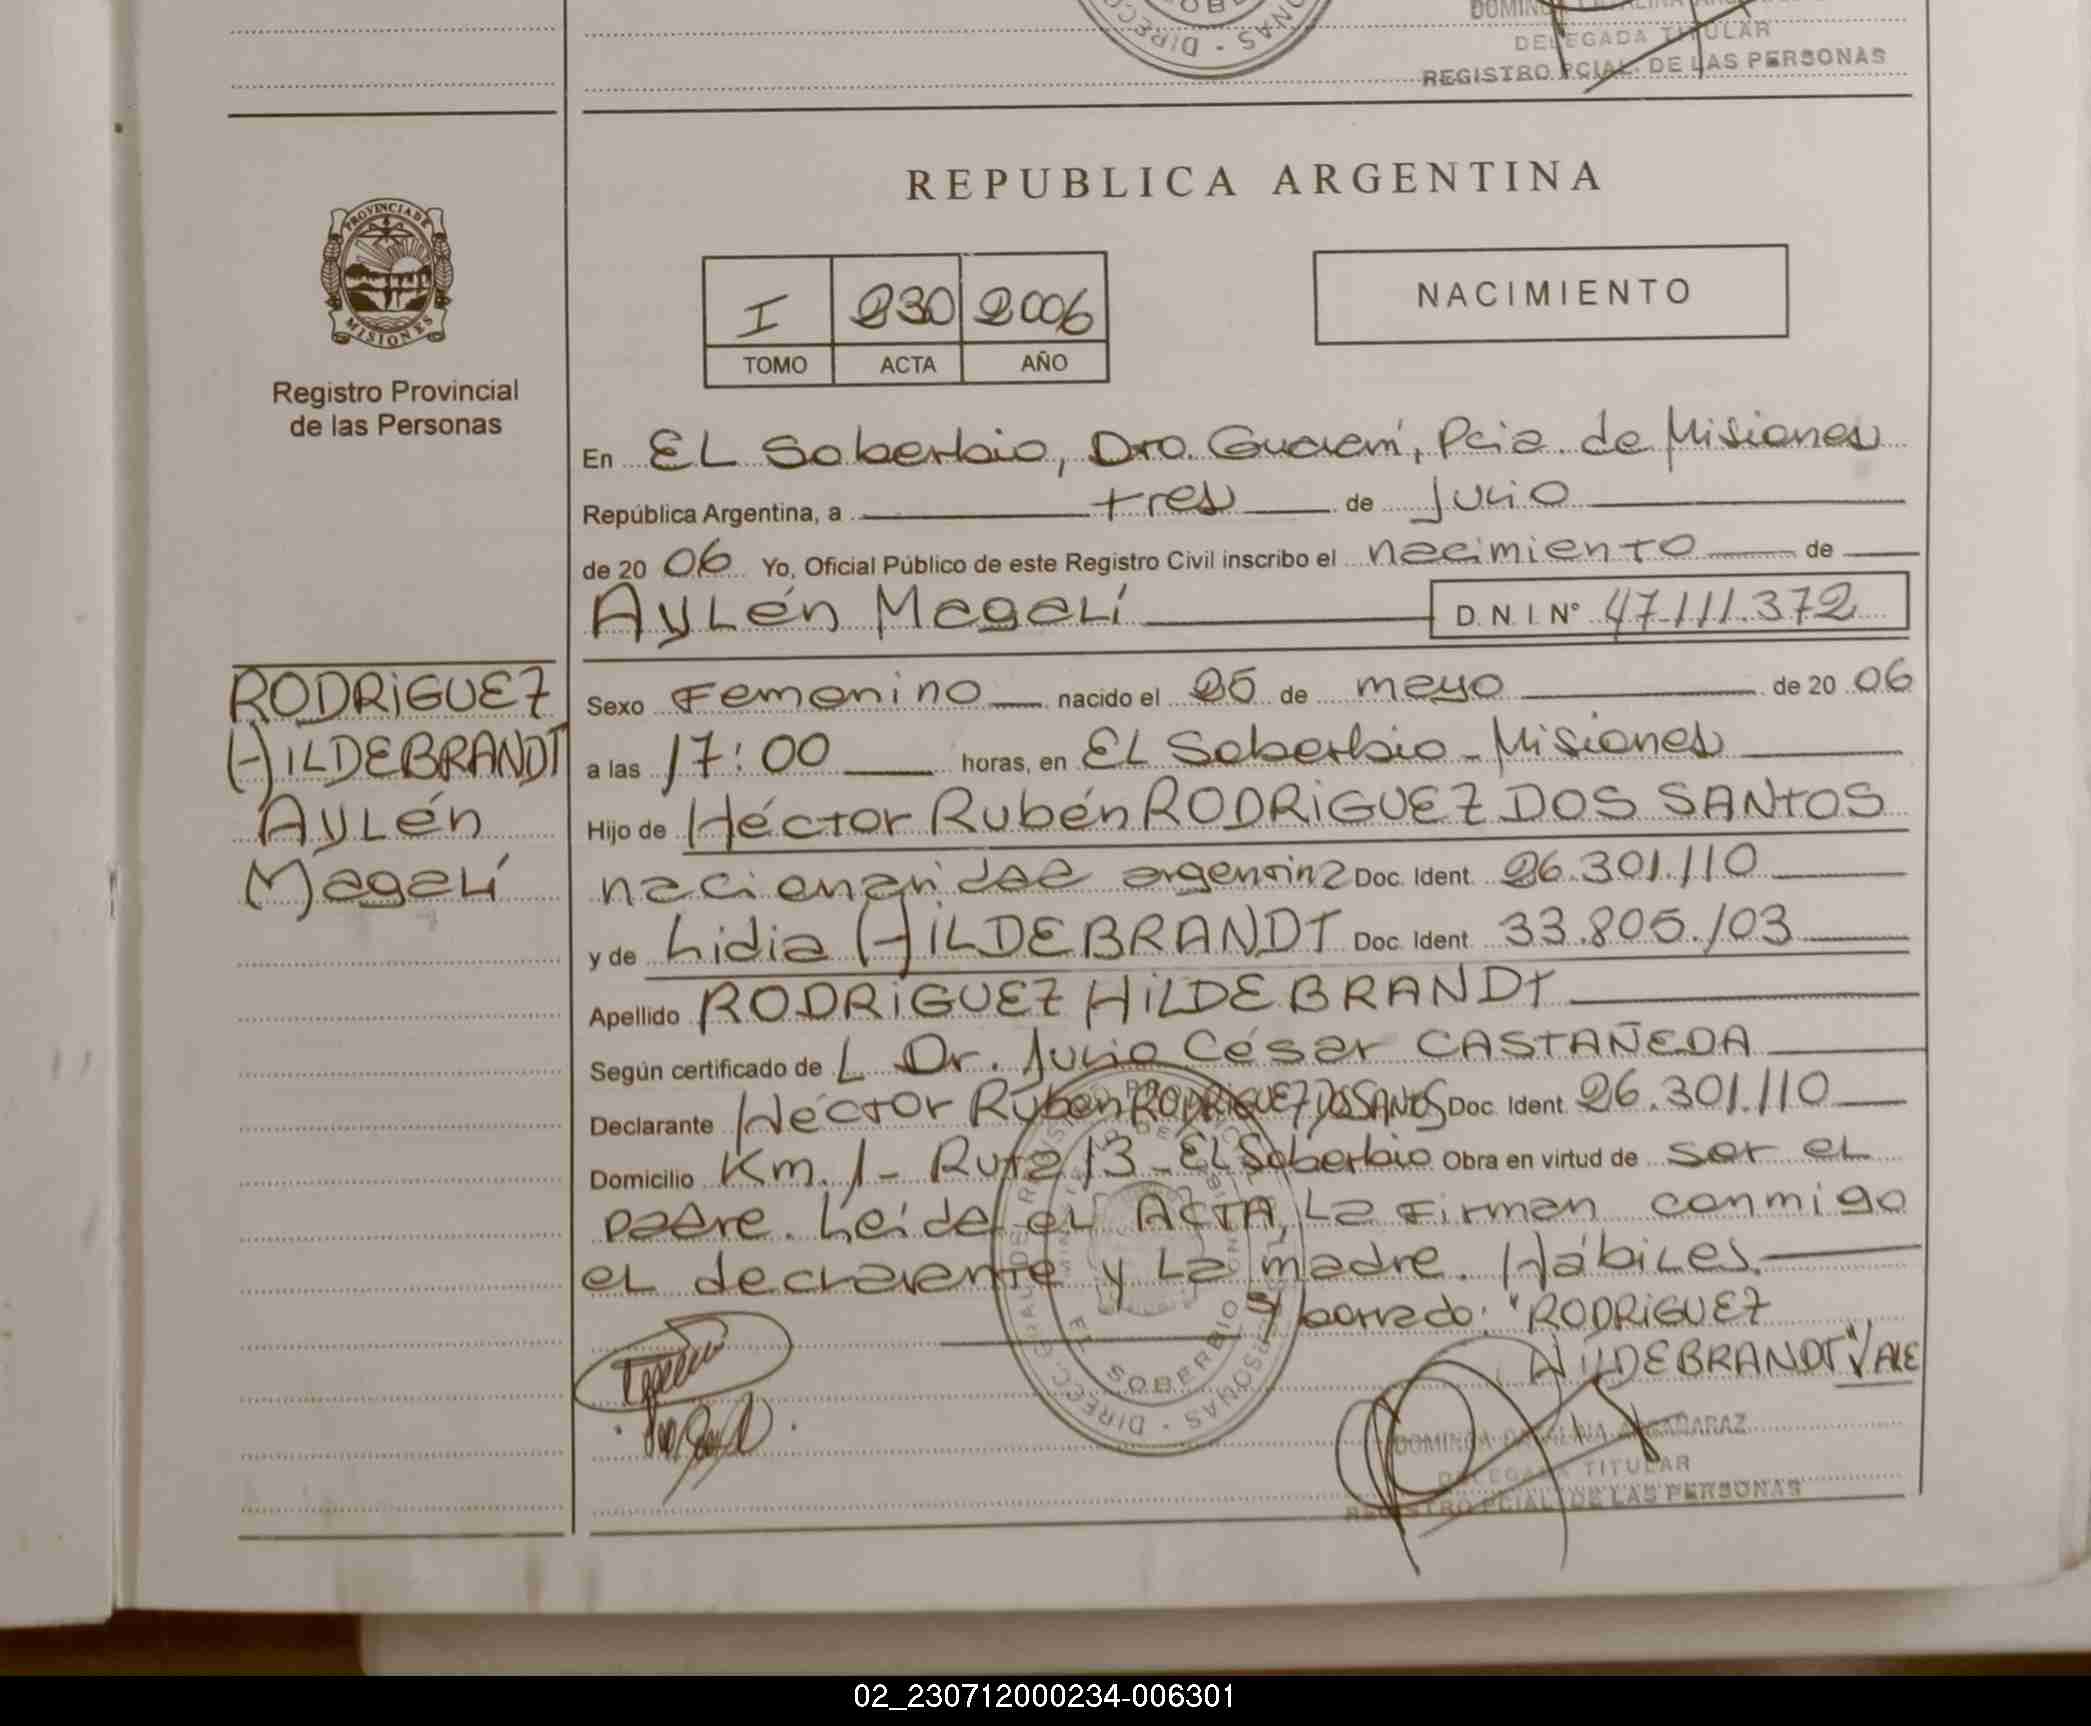 DELEGADA TITULAR
REGISTRO PCIAL. DE LAS PERSONAS
PROVINCIA DE
MISIONES
Registro Provincial
de las Personas
RODRiGUEZ
HILDEBRANDT
AyLén
Magalí
REPUBLICA ARGENTINA
I 230 2006
TOMO ACTA AÑO
NACIMIENTO
En EL Soberbio, Dto. Guaraní, Pcia. de Misiones
República Argentina, a tres de Julio
de 20 06 Yo, Oficial Público de este Registro Civil inscribo el nacimiento de
AyLén MagaLí D.N.I. N° 47.111.372
Sexo Femenino nacido el 25 de mayo de 20 06
a las 17:00 horas, en EL Soberbio - Misiones
Hijo de Héctor Rubén RODRiGUEZ DOS SANtOS
nacionalidad argentina Doc. Ident. 26.301.110
y de Lidia HILDEBRANDT Doc. Ident. 33.805.103
Apellido RODRiGUEZ HiLDEBRANDt
Según certificado de L Dr. Julio César CASTAÑEDA
Declarante Héctor Rubén RODRiGUEZ DOS SANtOS Doc. Ident. 26.301.110
Domicilio Km. 1 - Ruta 13 - EL Soberbio Obra en virtud de ser eL
padre. Leída eL ACTA, La Firman conmigo
eL declarante y La madre. HábiLes.
S/ borrado: "RODRiGUEZ
HILDEBRANDT" VALE
EL SOBERBIO
DELEGADA TITULAR
REGISTRO PCIAL. DE LAS PERSONAS
02_230712000234-006301